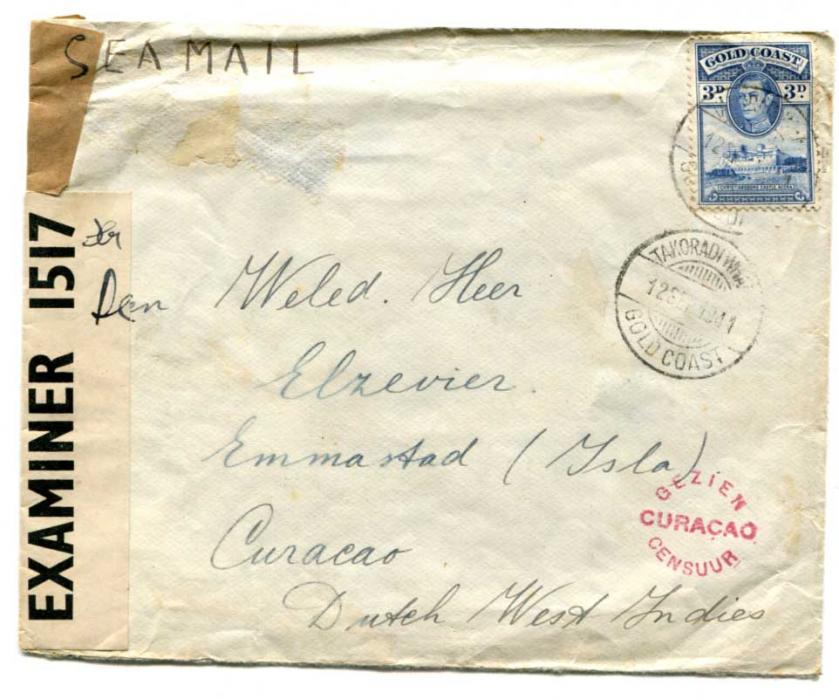 SEA MAIL
GOLD COAST
3D 3D
CHRISTIANSBORG CASTLE, ACCRA
TAKORADI
12 SE 1941
GOLD COAST
EXAMINER 1517
Den Weled. Heer
Elzevier.
Emmastad (Isla)
Curacao
Dutch West Indies
GEZIEN
CURAÇAO
CENSUUR